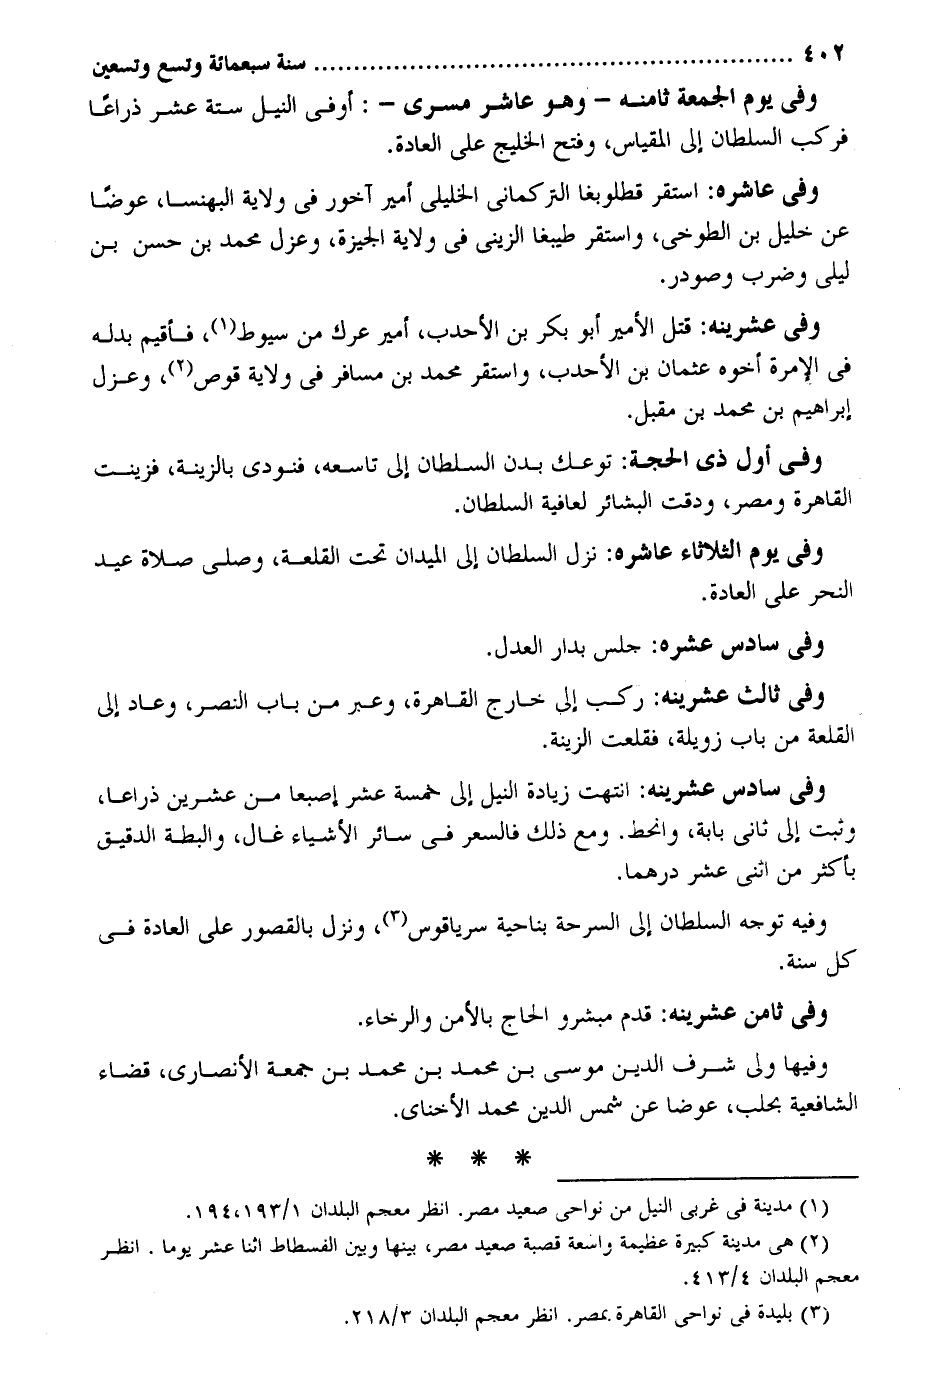 ٤٠٢ .......................................................... سنة سبعمائة وتسع وتسعين
وفى يوم الجمعة ثامنه – وهو عاشر مسرى – : أوفى النيل ستة عشر ذراعًا
فركب السلطان إلى المقياس، وفتح الخليج على العادة.
وفى عاشره: استقر قطلوبغا التركمانى الخليلى أمير آخور فى ولاية البهنسا، عوضًا
عن خليل بن الطوخى، واستقر طيبغا الزينى فى ولاية الجيزة، وعزل محمد بن حسن بن
ليلى وضرب وصودر.
وفى عشرينه: قتل الأمير أبو بكر بن الأحدب، أمير عرك من سيوط(١)، فأقيم بدله
فى الإمرة أخوه عثمان بن الأحدب، واستقر محمد بن مسافر فى ولاية قوص(٢)، وعزل
إبراهيم بن محمد بن مقبل.
وفى أول ذى الحجة: توعك بدن السلطان إلى تاسعه، فنودى بالزينة، فزينت
القاهرة ومصر، ودقت البشائر لعافية السلطان.
وفى يوم الثلاثاء عاشره: نزل السلطان إلى الميدان تحت القلعة، وصلى صلاة عيد
النحر على العادة.
وفى سادس عشره: جلس بدار العدل.
وفى ثالث عشرينه: ركب إلى خارج القاهرة، وعبر من باب النصر، وعاد إلى
القلعة من باب زويلة، فقلعت الزينة.
وفى سادس عشرينه: انتهت زيادة النيل إلى خمسة عشر إصبعا من عشرين ذراعا،
وثبت إلى ثانى بابة، وانحط. ومع ذلك فالسعر فى سائر الأشياء غال، والبطة الدقيق
بأكثر من اثنى عشر درهما.
وفيه توجه السلطان إلى السرحة بناحية سرياقوس(٣)، ونزل بالقصور على العادة فى
كل سنة.
وفى ثامن عشرينه: قدم مبشرو الحاج بالأمن والرخاء.
وفيها ولى شرف الدين موسى بن محمد بن محمد بن جمعة الأنصارى، قضاء
الشافعية بحلب، عوضا عن شمس الدين محمد الأخناى.
* * *
(١) مدينة فى غربى النيل من نواحى صعيد مصر. انظر معجم البلدان ١٩٤،١٩٣/١.
(٢) هى مدينة كبيرة عظيمة واسعة قصبة صعيد مصر، بينها وبين الفسطاط اثنا عشر يوما . انظر
معجم البلدان ٤١٣/٤.
(٣) بليدة فى نواحى القاهرة بمصر. انظر معجم البلدان ٢١٨/٣.